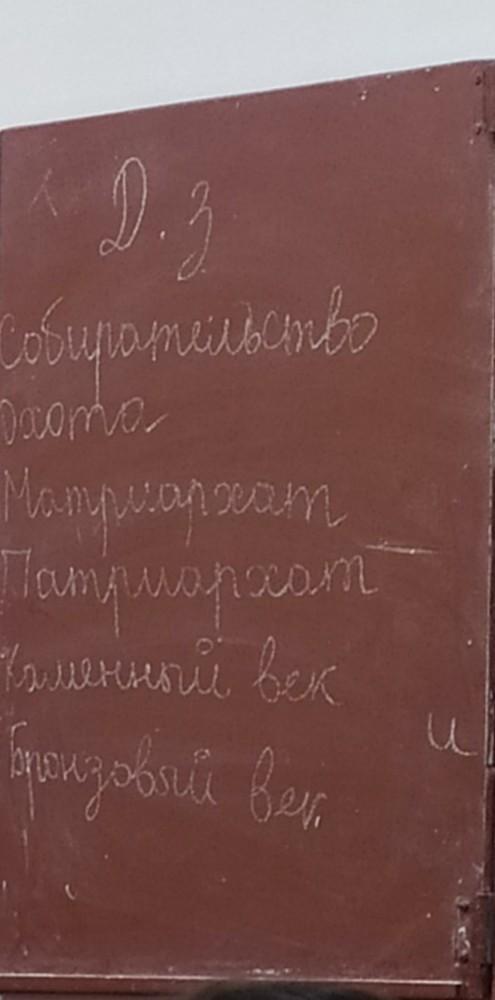 Д.з
Собирательство
Охота
Матриархат
Патриархат
Каменный век
Бронзовый век
и